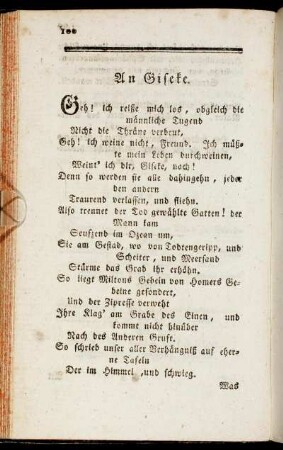 100
An Giseke.
Geh! ich reiße mich los, obgleich die
männliche Tugend
Nicht die Thräne verbeut,
Geh! ich weine nicht, Freund. Ich müß-
te mein Leben durchweinen,
Weint' ich dir, Giseke, nach!
Denn so werden sie alle dahingehn, jeder
den andern
Traurend verlassen, und fliehn.
Also trennet der Tod gewählte Gatten! der
Mann kam
Seufzend im Ozean um,
Sie am Gestad, wo von Todtengeripp, und
Scheiter, und Meersand
Stürme das Grab ihr erhöhn.
So liegt Miltons Gebein von Homers Ge-
beine gesondert,
Und der Zipresse verweht
Ihre Klag' am Grabe des Einen, und
komme nicht hinüber
Nach des Anderen Gruft.
So schrieb unser aller Verhängniß auf eher-
ne Tafeln
Der im Himmel ,und schwieg.
Was